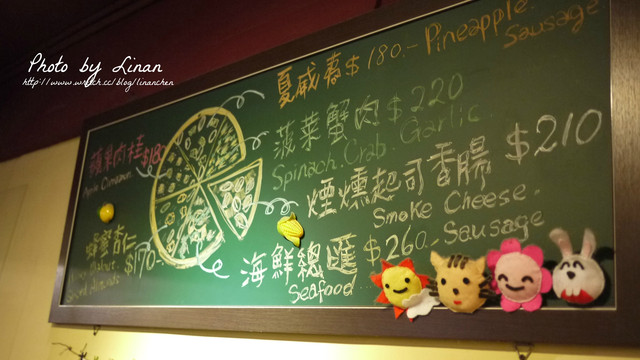 Photo by Linan
http://www.wretch.cc/blog/linanchen
夏威夷 $180.- Pineapple.
Sausage
菠菜蟹肉 $220
Spinach. Crab. Garlic.
煙燻起司香腸 $210
Smoke Cheese.
Sausage
海鮮總匯 $260.-
Seafood
蘋果肉桂 $180
Apple Cinnamon.
蜂蜜杏仁 $170.-